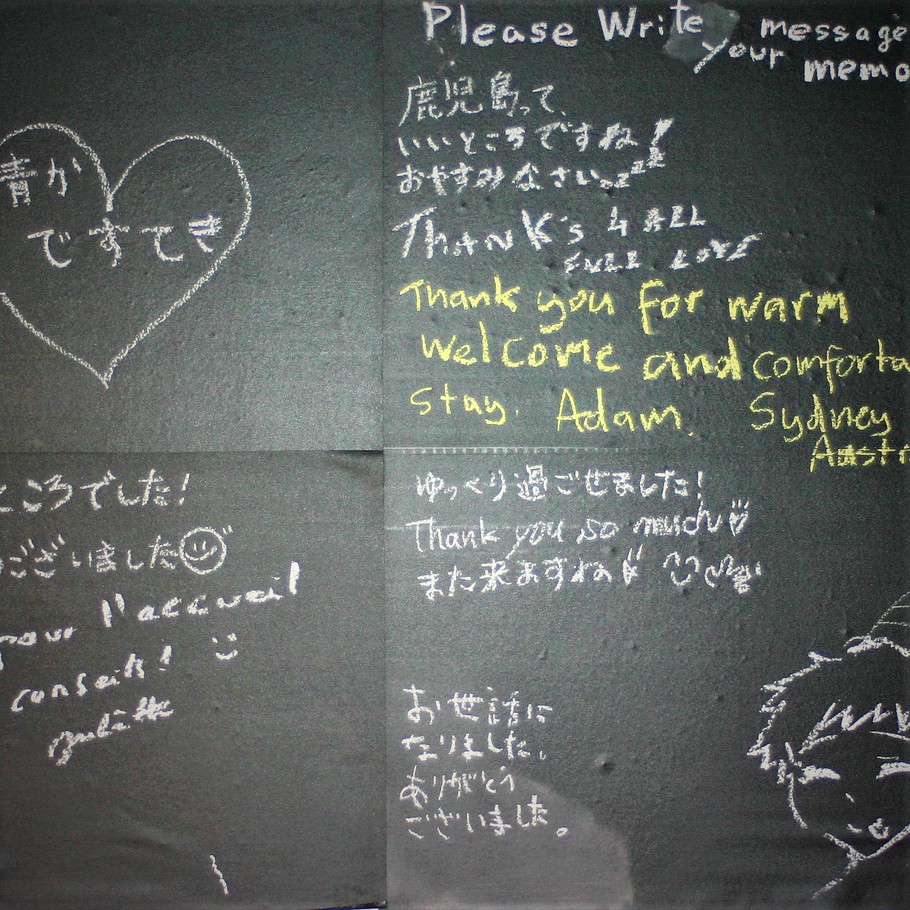 Please Write message
your memo
鹿児島って、
いいところですね!
おやすみなさいzzz
Thank's 4 ALL
FULL LOVE
Thank you for warm
welcome and comforta
stay. Adam. Sydney
Austr
青が
ですてき
ところでした!
ございました
pour l'accueil
conseils!
ゆっくり過ごせました!
Thank you so much
また来ますね
お世話に
なりました。
ありがとう
ございました。